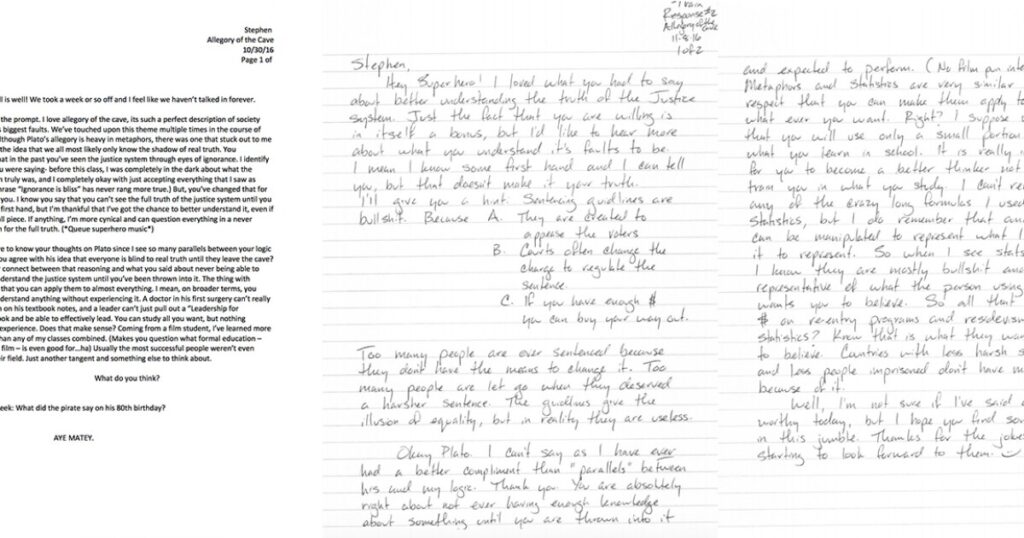 Stephen
Allegory of the Cave
10/30/16
Page 1 of
ll is well! We took a week or so off and I feel like we haven't talked in forever.
the prompt. I love allegory of the cave, its such a perfect description of society
s biggest faults. We've touched upon this theme multiple times in the course of
lthough Plato's allegory is heavy in metaphors, there was one that stuck out to me
the idea that we all most likely only know the shadow of real truth. You
hat in the past you've seen the justice system through eyes of ignorance. I identify
u were saying- before this class, I was completely in the dark about what the
n truly was, and I completely okay with just accepting everything that I saw as
hrase "Ignorance is bliss" has never rang more true.) But, you've changed that for
you. I know you say that you can't see the full truth of the justice system until you
first hand, but I'm thankful that I've got the chance to better understand it, even if
ll piece. If anything, I'm more cynical and can question everything in a never
n for the full truth. (*Queue superhero music*)
e to know your thoughts on Plato since I see so many parallels between your logic
ou agree with his idea that everyone is blind to real truth until they leave the cave?
r connect between that reasoning and what you said about never being able to
nderstand the justice system until you've been thrown into it. The thing with
that you can apply them to almost everything. I mean, on broader terms, you
derstand anything without experiencing it. A doctor in his first surgery can't really
n on his textbook notes, and a leader can't just pull out a "Leadership for
ook and be able to effectively lead. You can study all you want, but nothing
experience. Does that make sense? Coming from a film student, I've learned more
han any of my classes combined. (Makes you question what formal education –
film – is even good for...ha) Usually the most successful people weren't even
eir field. Just another tangent and something else to think about.
What do you think?
eek: What did the pirate say on his 80th birthday?
AYE MATEY.
Response #2
Allegory of the Cave
11-8-16
1 of 2
Stephen,
Hey Superhero! I loved what you had to say
about better understanding the truth of the Justice
system. Just the fact that you are willing is
in itself a bonus, but I'd like to hear more
about what you understand it's faults to be.
I mean I know some first hand and I can tell
you, but that doesn't make it your truth.
I'll give you a hint. Sentencing guidlines are
bullshit. Because A. They are created to
appease the voters
B. Courts often change the
charge to regulate the
sentence.
C. If you have enough $
you can buy your way out.
Too many people are over sentenced because
they don't have the means to change it. Too
many people are let go when they deserved
a harsher sentence. The guidlines give the
illusion of equality, but in reality they are useless.
Okay Plato. I can't say as I have ever
had a better compliment than "parallels" between
his and my logic. Thank you. You are absolutely
right about not ever having enough knowledge
about something until you are thrown into it
and expected to perform. (No film pun inte
Metaphors and Statistics are very similar
respect that you can make them apply to
what ever you want. Right? I suppose
that you will use only a small portion
what you learn in school. It is really
for you to become a better thinker not
train you in what you study. I can't re
any of the crazy long formulas I used
Statistics, but I do remember that an
can be manipulated to represent what I
it to represent. So when I see stat
I know they are mostly bullshit an
representative of what the person using
wants you to believe. So all that
$ on reentry programs and residevism
statistics? Know that is what they wan
to believe. Countries with less harsh s
and less people imprisoned don't have m
because of it.
Well, I'm not sure if I've said a
worthy today, but I hope you find so
in this jumble. Thanks for the joke
starting to look forward to them.